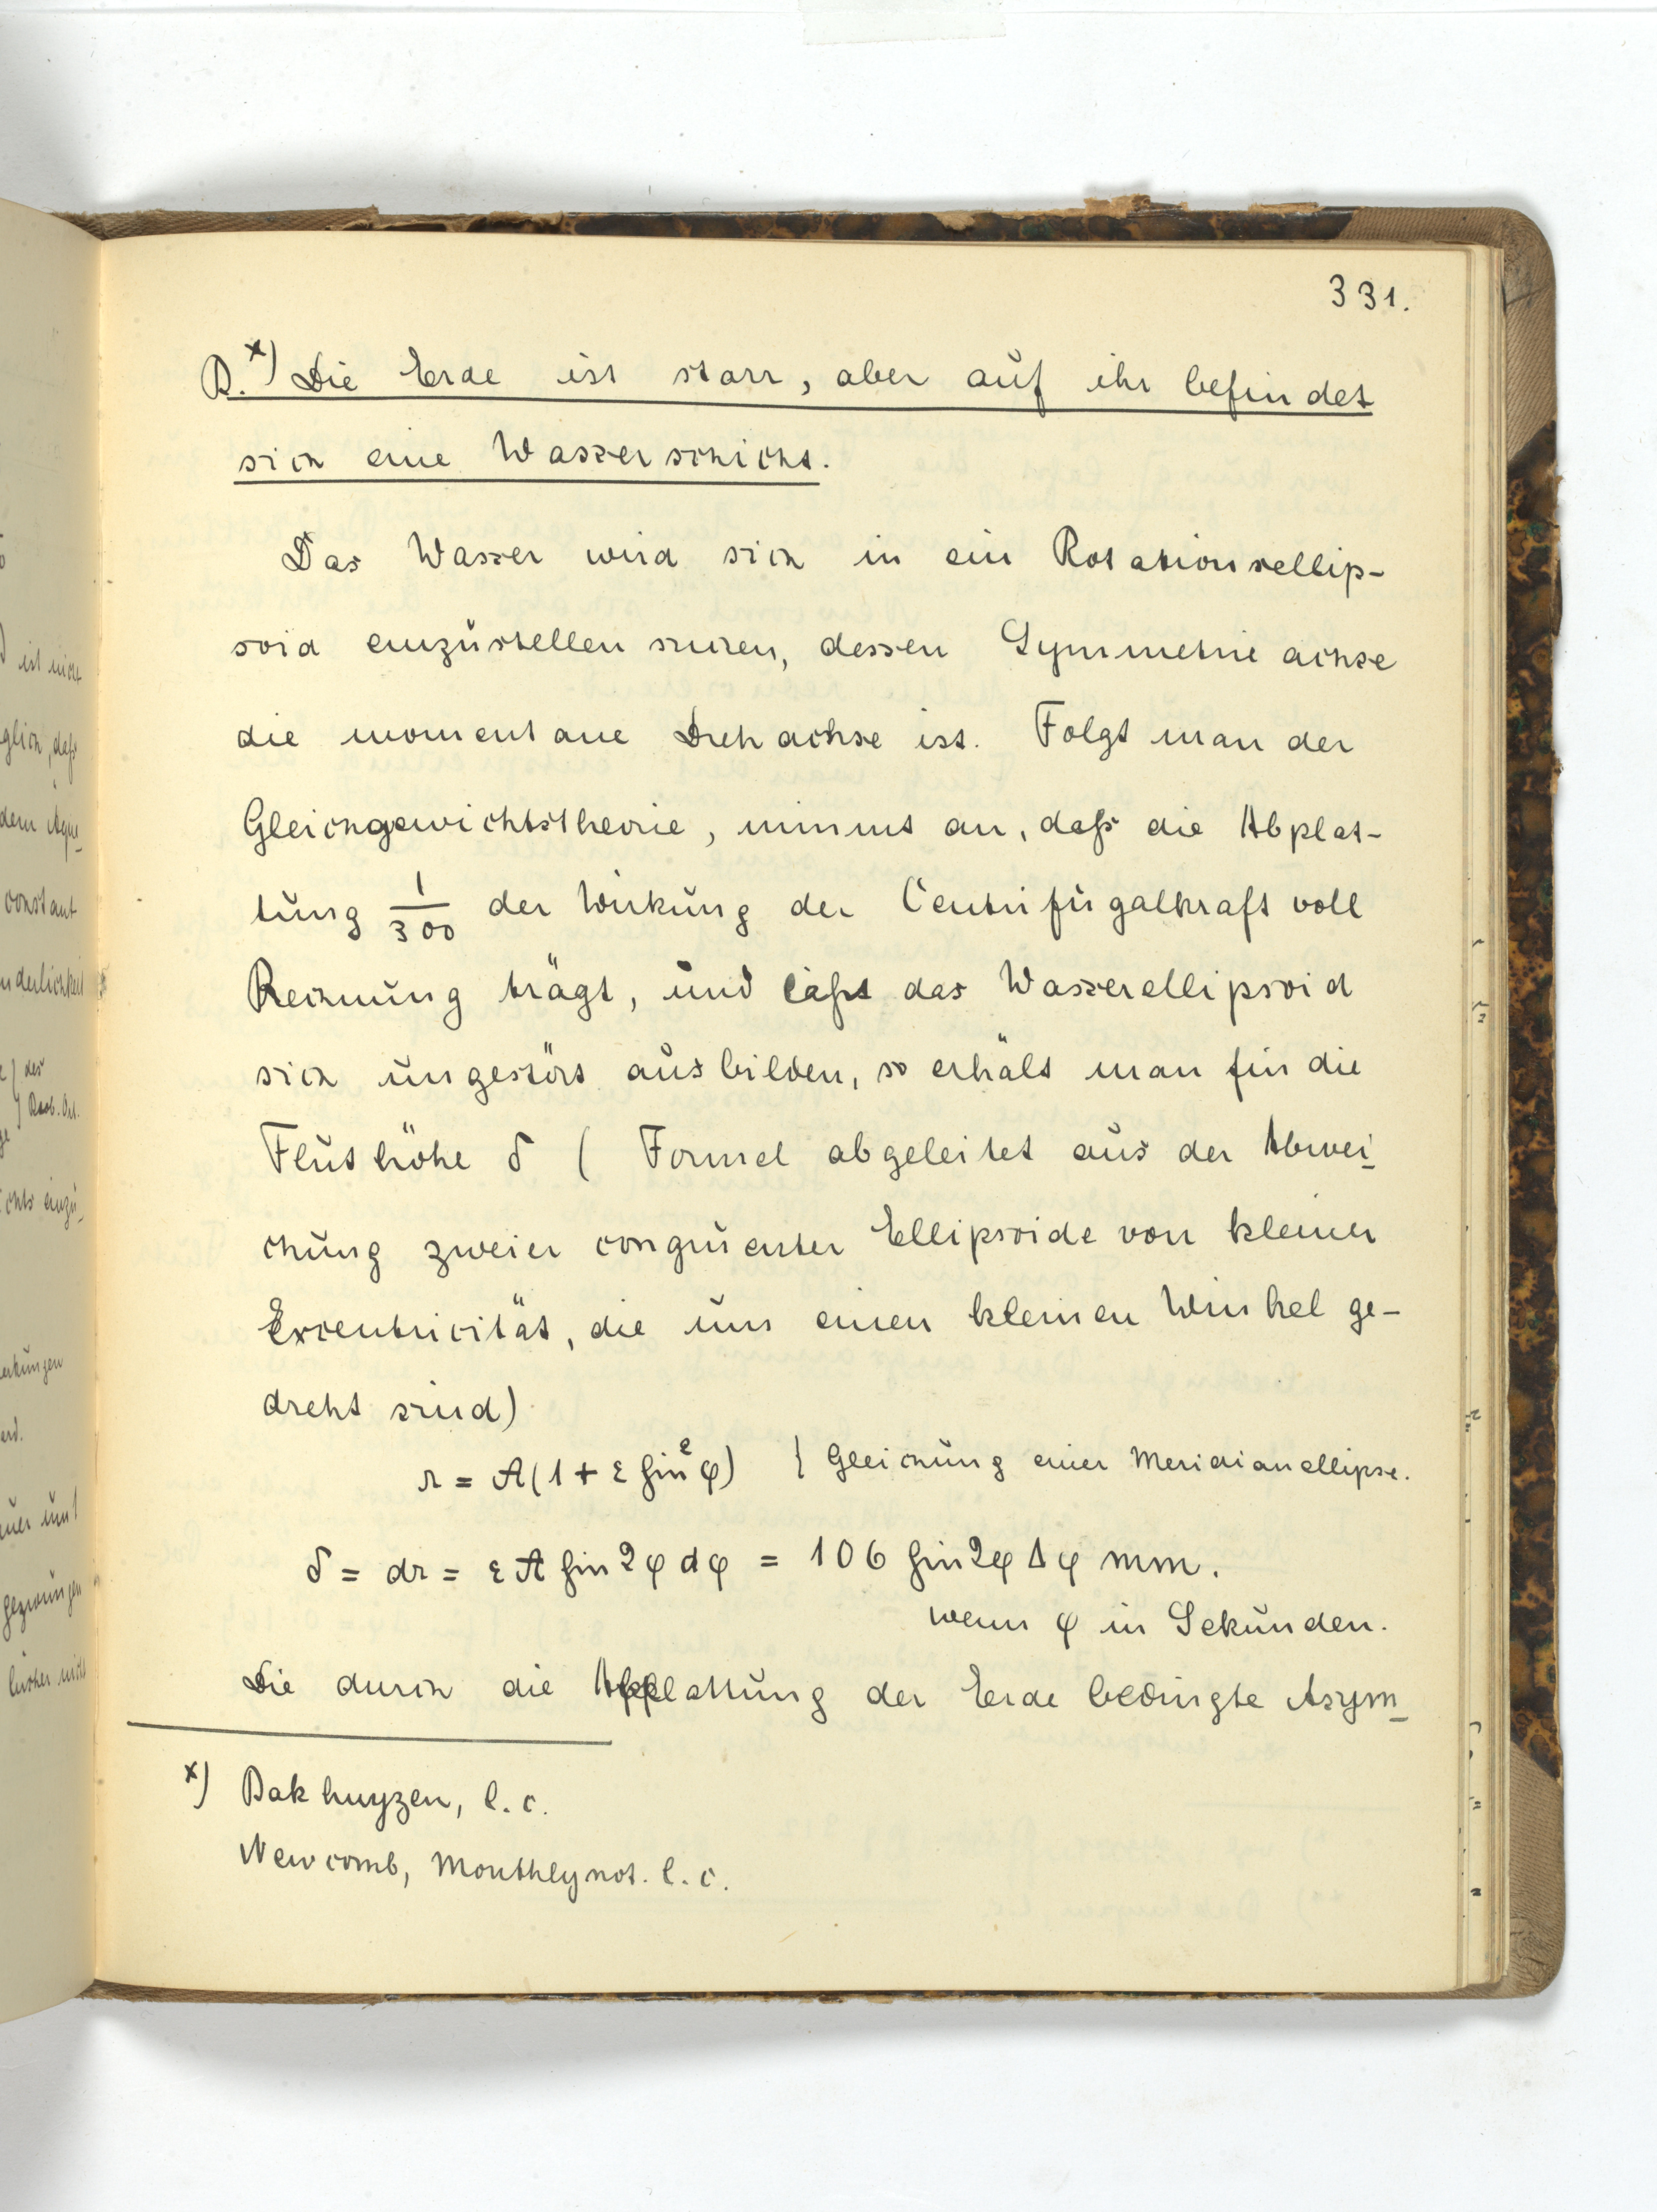 331.
B. x) Die Erde ist starr, aber auf ihr befindet
sich eine Wasserschicht.
Das Wasser wird sich in ein Rotationsellip-
soid einzustellen suchen, dessen Symmetrieachse
die momentane Drehachse ist. Folgt man der
Gleichgewichtstheorie, nimmt an, daß die Abplat-
tung 1/300 der Wirkung der Centrifugalkraft voll
Rechnung trägt, und läßt das Wasserellipsoid
sich ungestört ausbilden, so erhält man für die
Fluthöhe δ ( Formel abgeleitet aus der Abwei-
chung zweier congruenter Ellipsoide von kleiner
Excentricität, die um einen kleinen Winkel ge-
dreht sind)
r = A(1 + ε sin² φ) } Gleichung einer Meridianellipse.
δ = dr = ε A sin 2φ dφ = 106 sin 2φ Δφ mm.
wenn φ in Sekunden.
Die durch die Abplattung der Erde bedingte Asym-
x) Bakhuyzen, l. c.
Newcomb, Monthly not. l. c.
ist nicht
glich, daß
dem Aequ-
constant
nderlichkeit
des
Beob. Ort.
chts einzu-
erkungen
erd.
auer und
gezwungen
bisher nicht